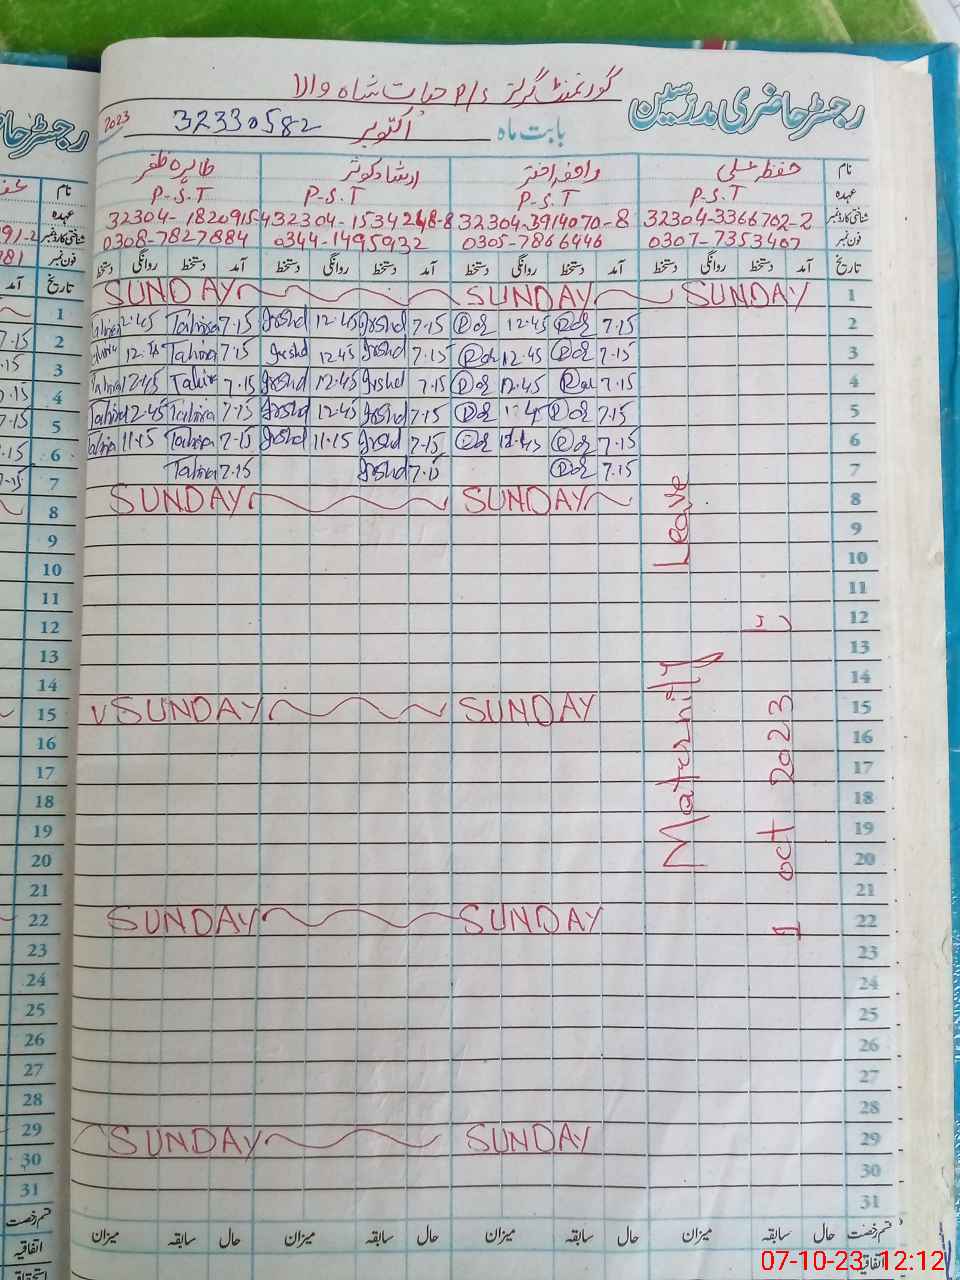 رجسٹر حاضری مدرسین
گورنمنٹ گرلز P/S حیات شاہ والا
بابت ماہ اکتوبر 32330582 2023
نام حفظہ علی ارشاد کوثر طاہرہ ظفر
عہدہ P.S.T P.S.T P-S-T P-S-T
شناختی کارڈ نمبر 32304-3366702-2 32304-3914070-8 32304-1534248-8 32304-1820915-4
فون نمبر 0307-7353407 0305-7866446 0344-1495932 0308-7827884
تاریخ آمد دستخط روانگی دستخط آمد دستخط روانگی دستخط آمد دستخط روانگی دستخط آمد دستخط روانگی دستخط
1 SUNDAY SUNDAY SUNDAY
2 7.15 12.45 7.15 Irshd 12.45 Irshd 7.15 Tahira 12.45 Tahira
3 7.15 12.45 7.15 Irshd 12.45 Irshd 7.15 Tahira 12.45
4 7.15 12.45 7.15 Irshd 12.45 Irshd 7.15 Tahira 12.45 Tahira
5 7.15 7.15 Irshd 12.45 Irshd 7.15 Tahira 12.45 Tahira
6 7.15 12.45 7.15 Irshd 11.15 Irshd 7.15 Tahira 11.15 Tahira
7 7.15 7.15 Irshd 7.15 Tahira
8 SUNDAY SUNDAY
9
10
11
12
13
14
15 SUNDAY SUNDAY
16
17
18
19
20
21
22 SUNDAY SUNDAY
23
24
25
26
27
28
29 SUNDAY SUNDAY
30
31
Maternity Leave
1 oct 2023
قسم رخصت حال سابقہ میزان حال سابقہ میزان حال سابقہ میزان حال سابقہ میزان
اتفاقیہ
07-10-23 12:12
رجسٹر حا
نام
عہدہ
شناختی کارڈ نمبر
فون نمبر
تاریخ آمد
1
2 7.15
3
4
5
6
7
8
9
10
11
12
13
14
15
16
17
18
19
20
21
22
23
24
25
26
27
28
29
30
31
قسم رخصت
اتفاقیہ